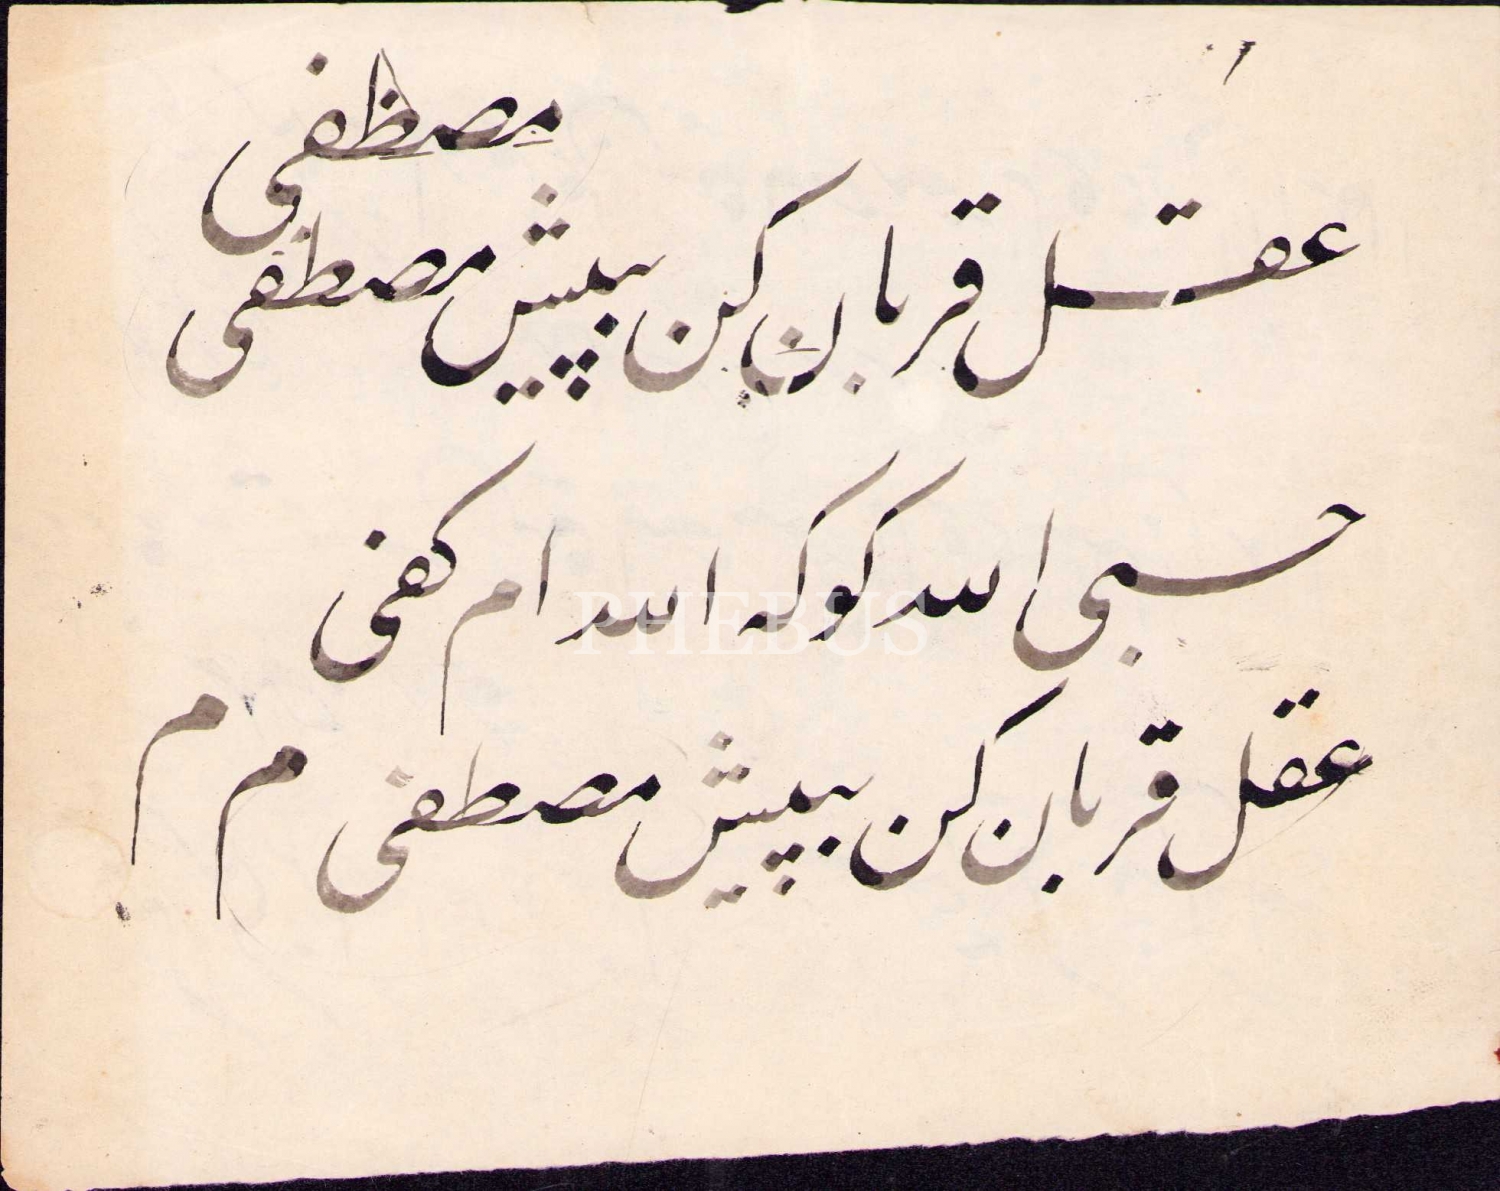 مصطفی
عقل قربان کن بپیش مصطفی
حسبی الله کو که الله ام کفی
عقل قربان کن بپیش مصطفی م م
PHEBUS